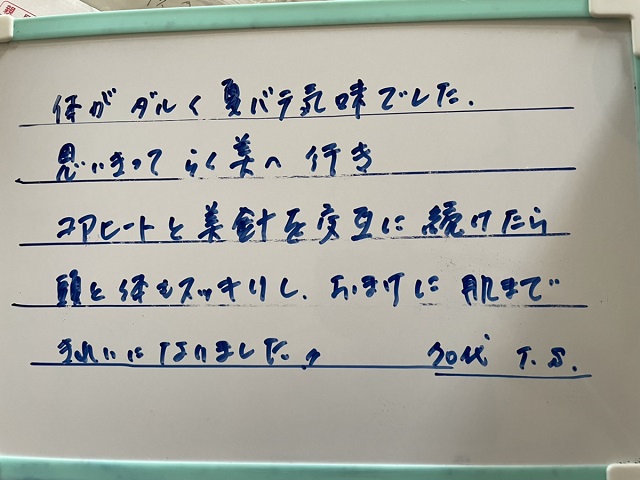 体がダルく夏バテ気味でした.
思いきって らく美へ 行き
コアヒートと美針を交互に続けたら
頭と体もスッキリし、おまけに肌まで
きれいになりました。
代 T.S.